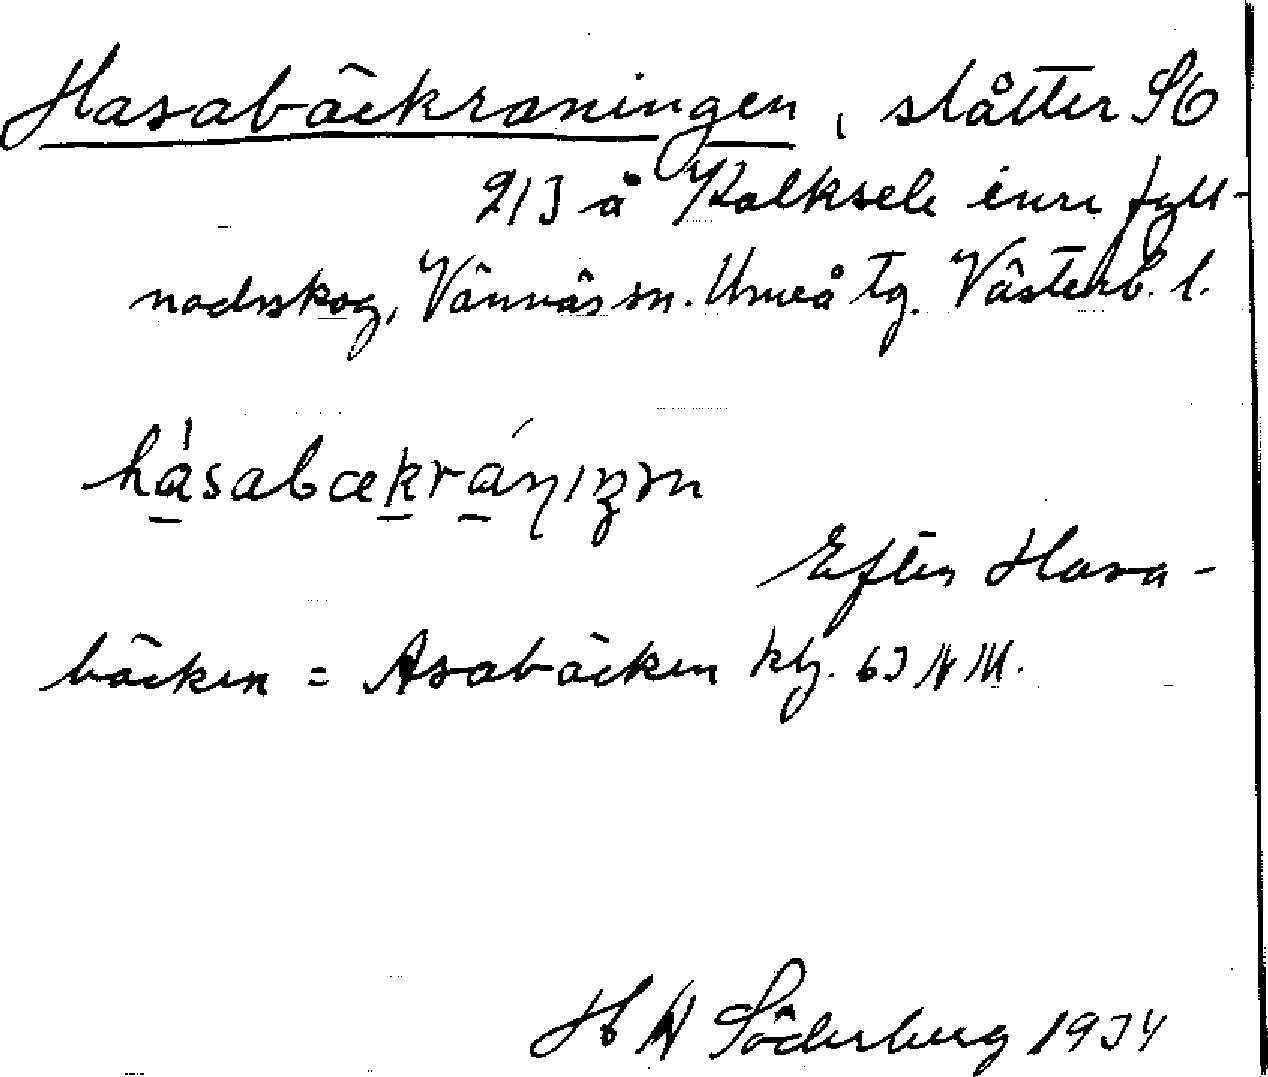 Hasabäckraningen, slåtter St
213 å Kolksele inre fyll-
nadsskog, Vännäs sn. Umeå tg. Västerb. l.
hásabækráŋıŋn
Efter Hasa-
bäcken = Asabäcken kbj. 63 N M.
H N Söderberg 1934